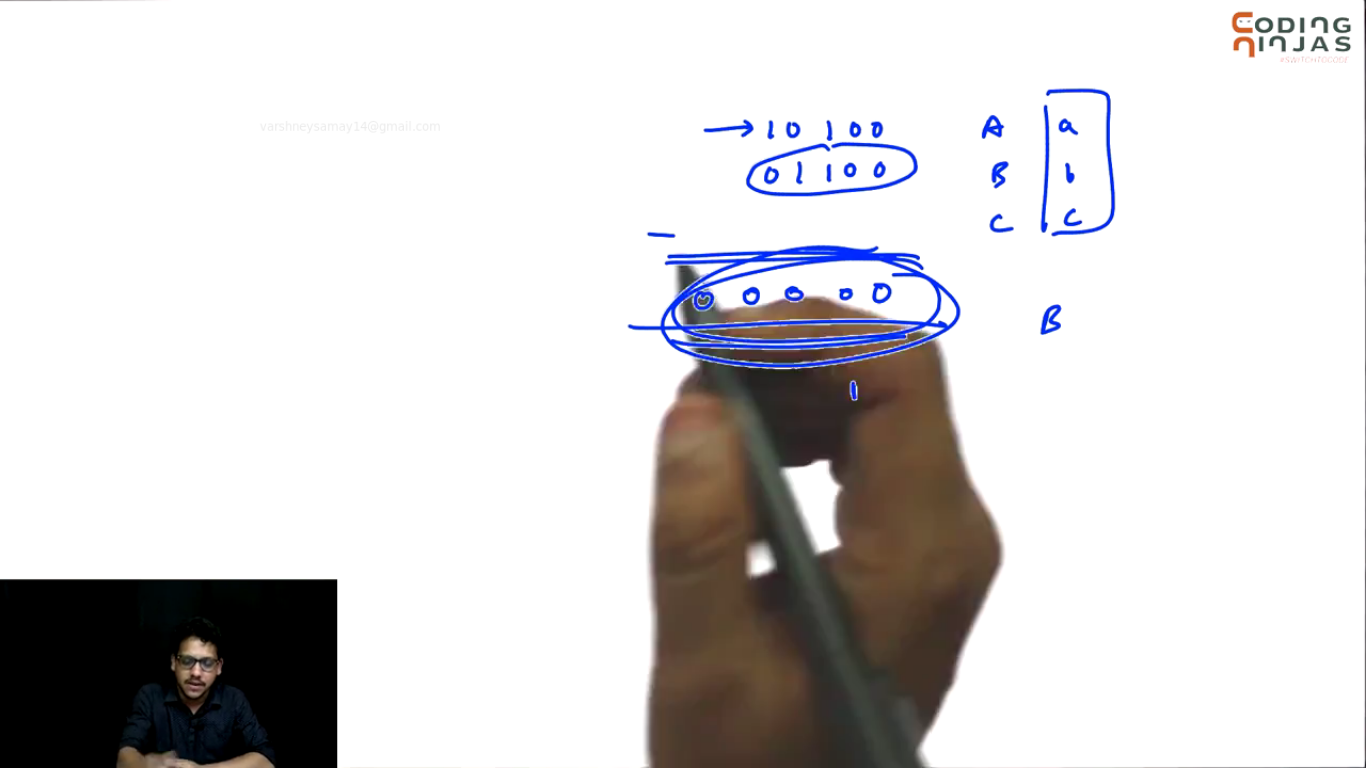 CODING
NINJAS
#SWITCHTOCODE
varshneysamay14@gmail.com
→ 1 0 1 0 0 A a
0 1 1 0 0 B b
C c
0 0 0 0 0 B
1